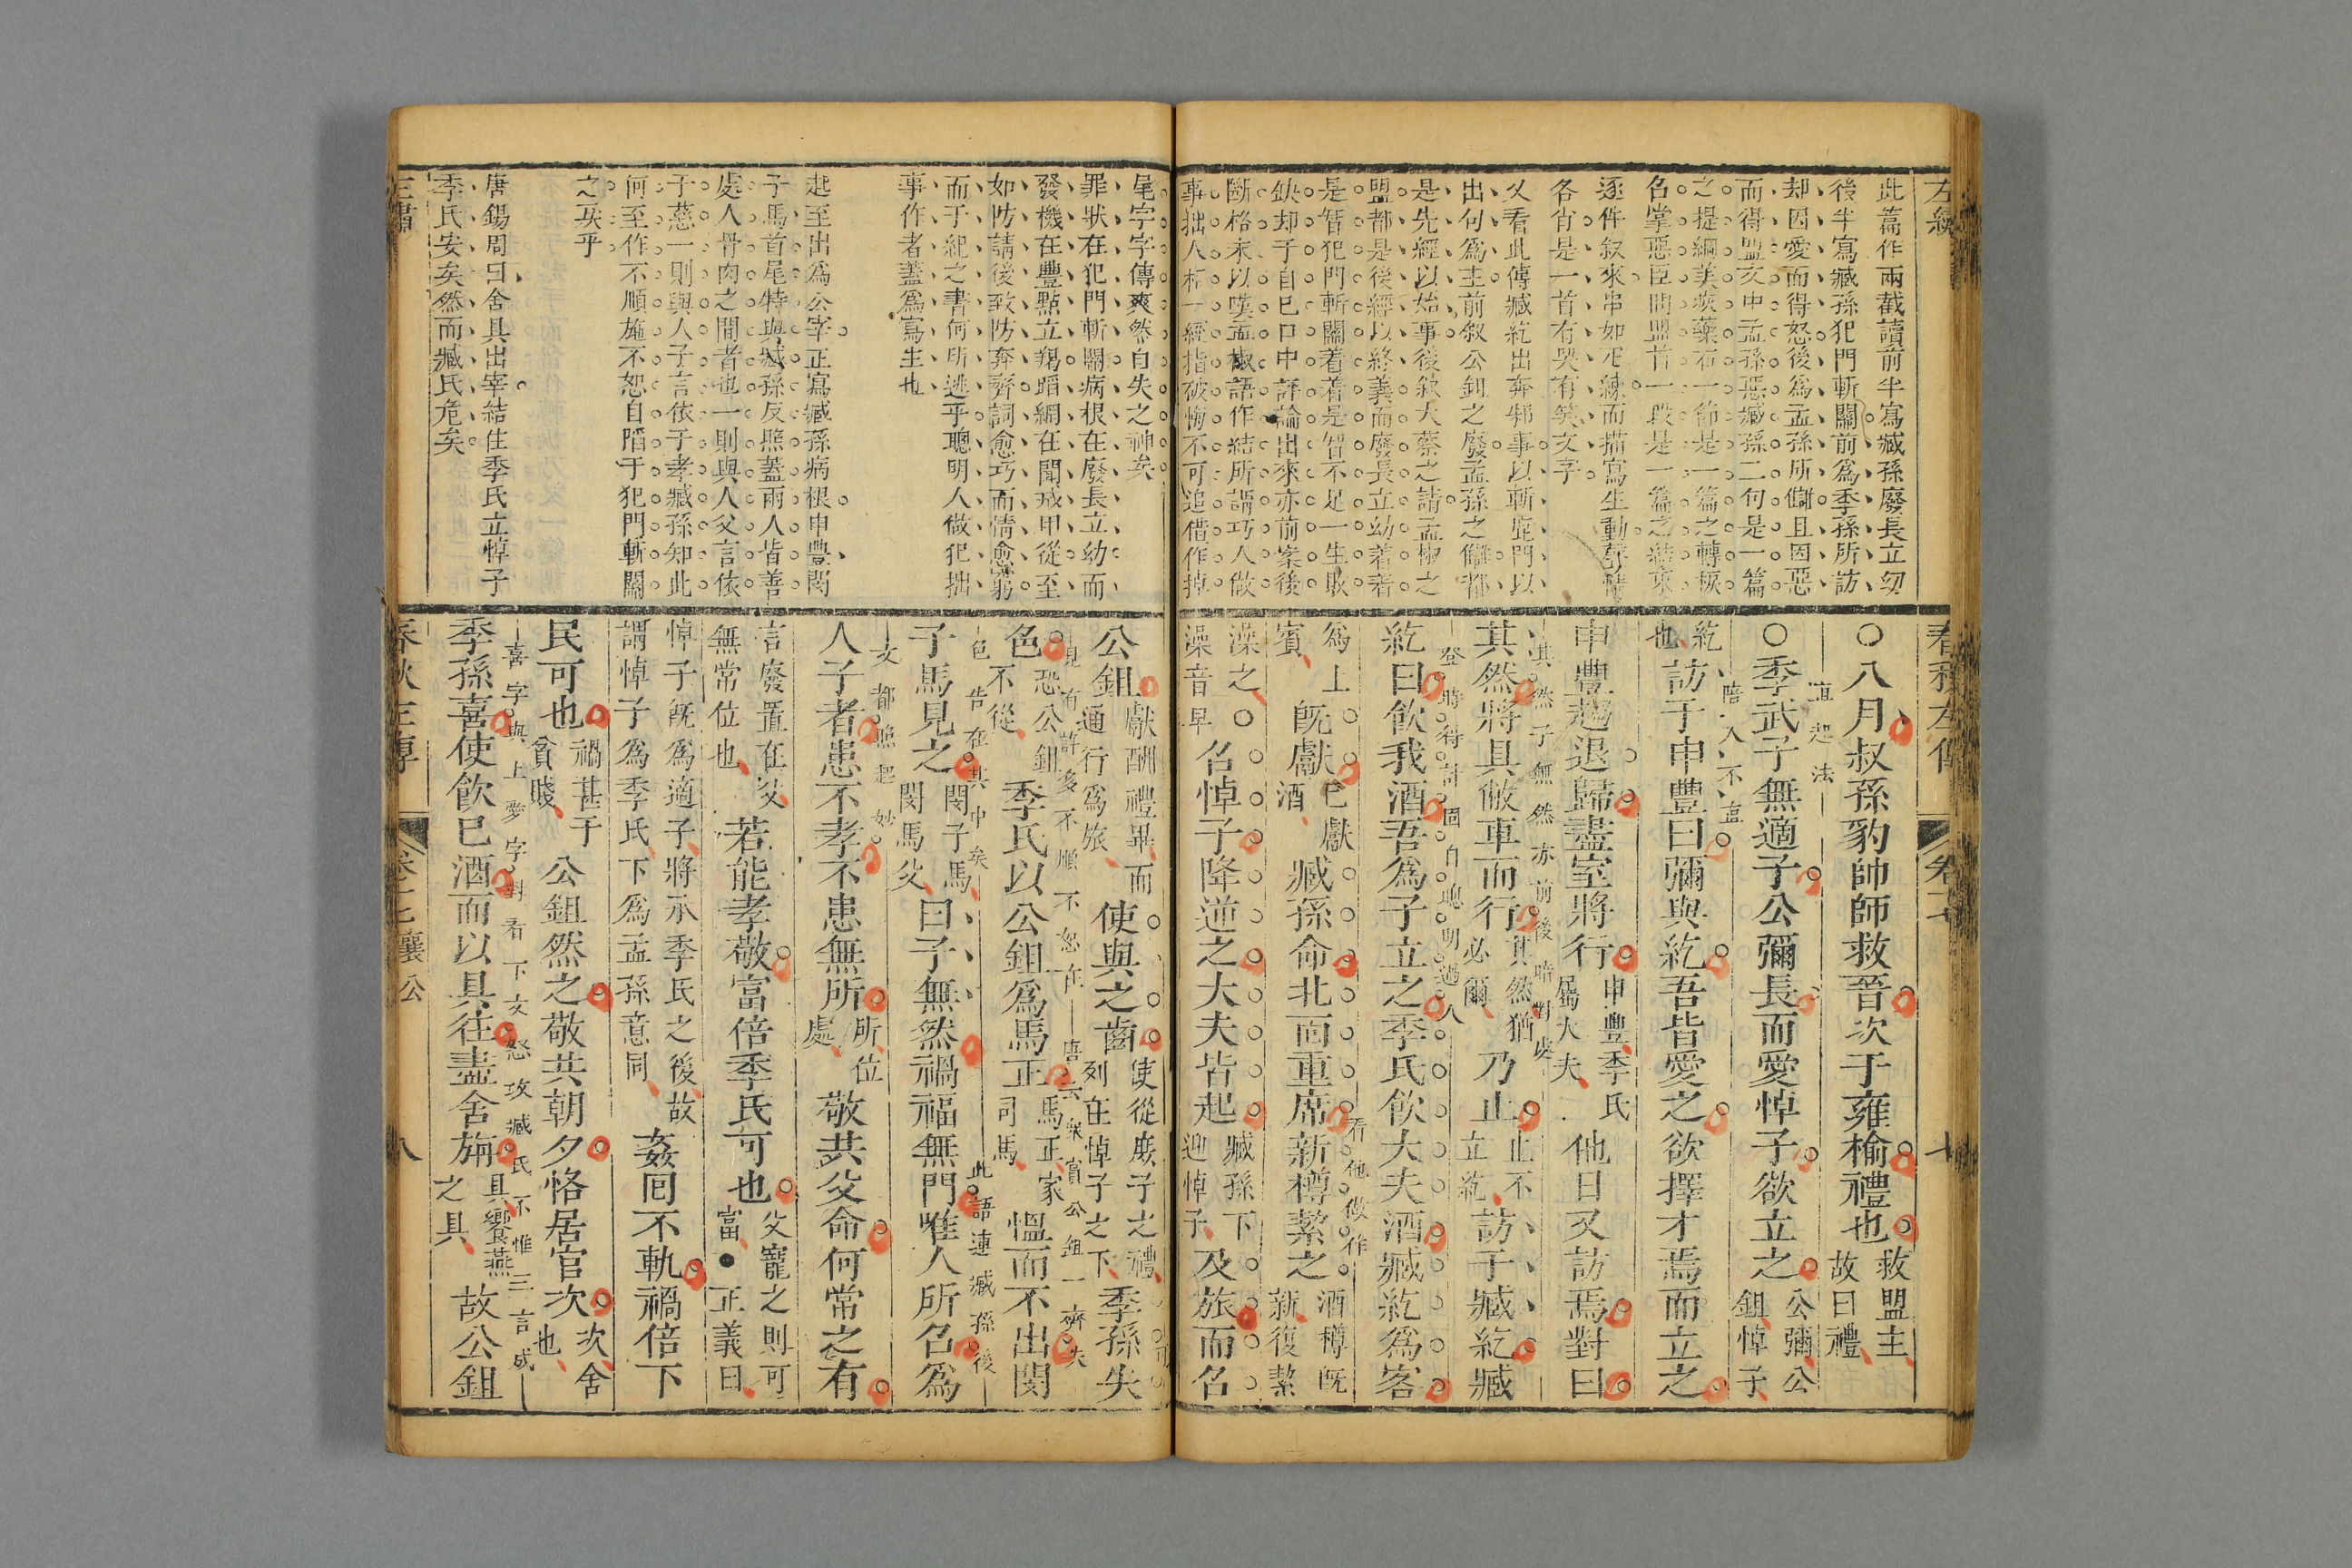 左繡
此篇作兩截讀前半寫臧孫廢長立幼
後半寫臧孫犯門斬關前為季孫所訪
却因愛而得怒後為孟孫所讎且因惡
而得盟亥中孟孫惡臧孫二句是一篇
之提綱美疢藥石一節是一篇之轉捩
名掌惡臣問盟首一段是一篇之結束
逐件敘來串如疋練而描寫生動聲情
各肖是一首有哭有笑文字
又看此傳臧紇出奔邾事以斬鹿門以
出句為主前叙公鉏之廢孟孫之讎都
是先經以始事後敘大蔡之請孟椒之
盟都是後經以終義而廢長立幼着着
是智犯門斬關着着是智不足一生敗
缺却于自己口中評論出來亦前案後
斷格末以嘆孟椒語作結所謂巧人做
事拙人
春秋左傳
卷十七
七
○八月叔孫豹帥師救晉次于雍榆禮也
救盟主
故曰禮
宜起法
○季武子無適子公彌長而愛悼子欲立之
公彌公
鉏悼子
紇
也
訪于申豐曰彌與紇吾皆愛之欲擇才焉而立之
申豐趨退歸盡室將行
申豐季氏
屬大夫
他日又訪焉對曰
其然將具敝車而行
其然猶
必爾
乃止
止不
立紇
訪于臧紇臧
紇曰飲我酒吾為子立之季氏飲大夫酒臧紇為客
為上
賓
既獻
已獻
酒
臧孫命北面重席新樽絜之
酒樽既
新復絜
看他做作
澡之
澡音早
召悼子降逆之大夫皆起
臧孫下
迎悼子
及旅而召
尾字字傳爽然自失之神矣
罪狀在犯門斬關病根在廢長立幼而
發機在豐點立羯暗綱在聞戒甲從至
如防請後致防奔齊詞愈巧而情愈窮
而于紀之書何所逃乎聰明人做犯拙
事作者蓋為寫生也
起至出為公宰正寫臧孫病根申豐閔
子馬首尾特與臧孫反照蓋兩人皆善
處人骨肉之間者也一則與人父言依
于慈一則與人子言依于孝臧孫知此
何至作不順施不恕自陷于犯門斬關
之戾乎
唐錫周曰舍具出宰結住季氏立悼子
季氏安矣然而臧氏危矣
公鉏
獻酬禮畢而
通行為旅
使與之齒
使從庶子之禮
列在悼子之下
季孫失
色
恐公鉏
不從
季氏以公鉏為馬正
馬正家
司馬
慍而不出閔
子馬見之
閔子馬
閔馬父
曰子無然禍福無門唯人所召為
此語連臧孫後
人子者患不孝不患無所
所位
處
敬共父命何常之有
言廢置在父
無常位也
若能孝敬富倍季氏可也
父寵之則可
富●正義曰
悼子既為適子將承季氏之後故
謂悼子為季氏下為孟孫意同
姦回不軌禍倍下
民可也
禍甚于
貧賤
公鉏然之敬共朝夕恪居官次
次舍
也
喜字與上愛字對看下文怒攻臧氏不惟三言成
季孫喜使飲己酒而以具往盡舍旃
具饗燕
之具
故公鉏
春秋左傳
卷十七 襄公
八